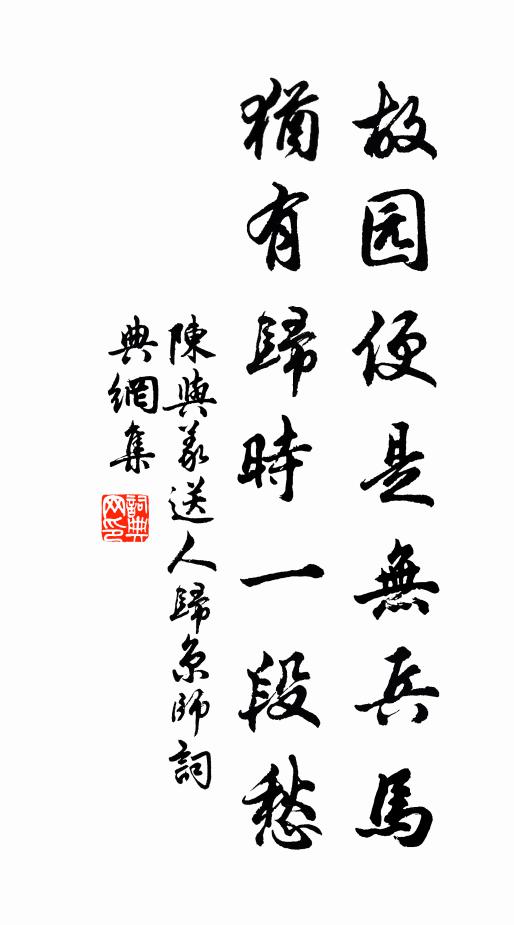 故园便是無兵馬
猶有歸時一段愁
陳與義送人歸京師詞
典網集
詞典網印